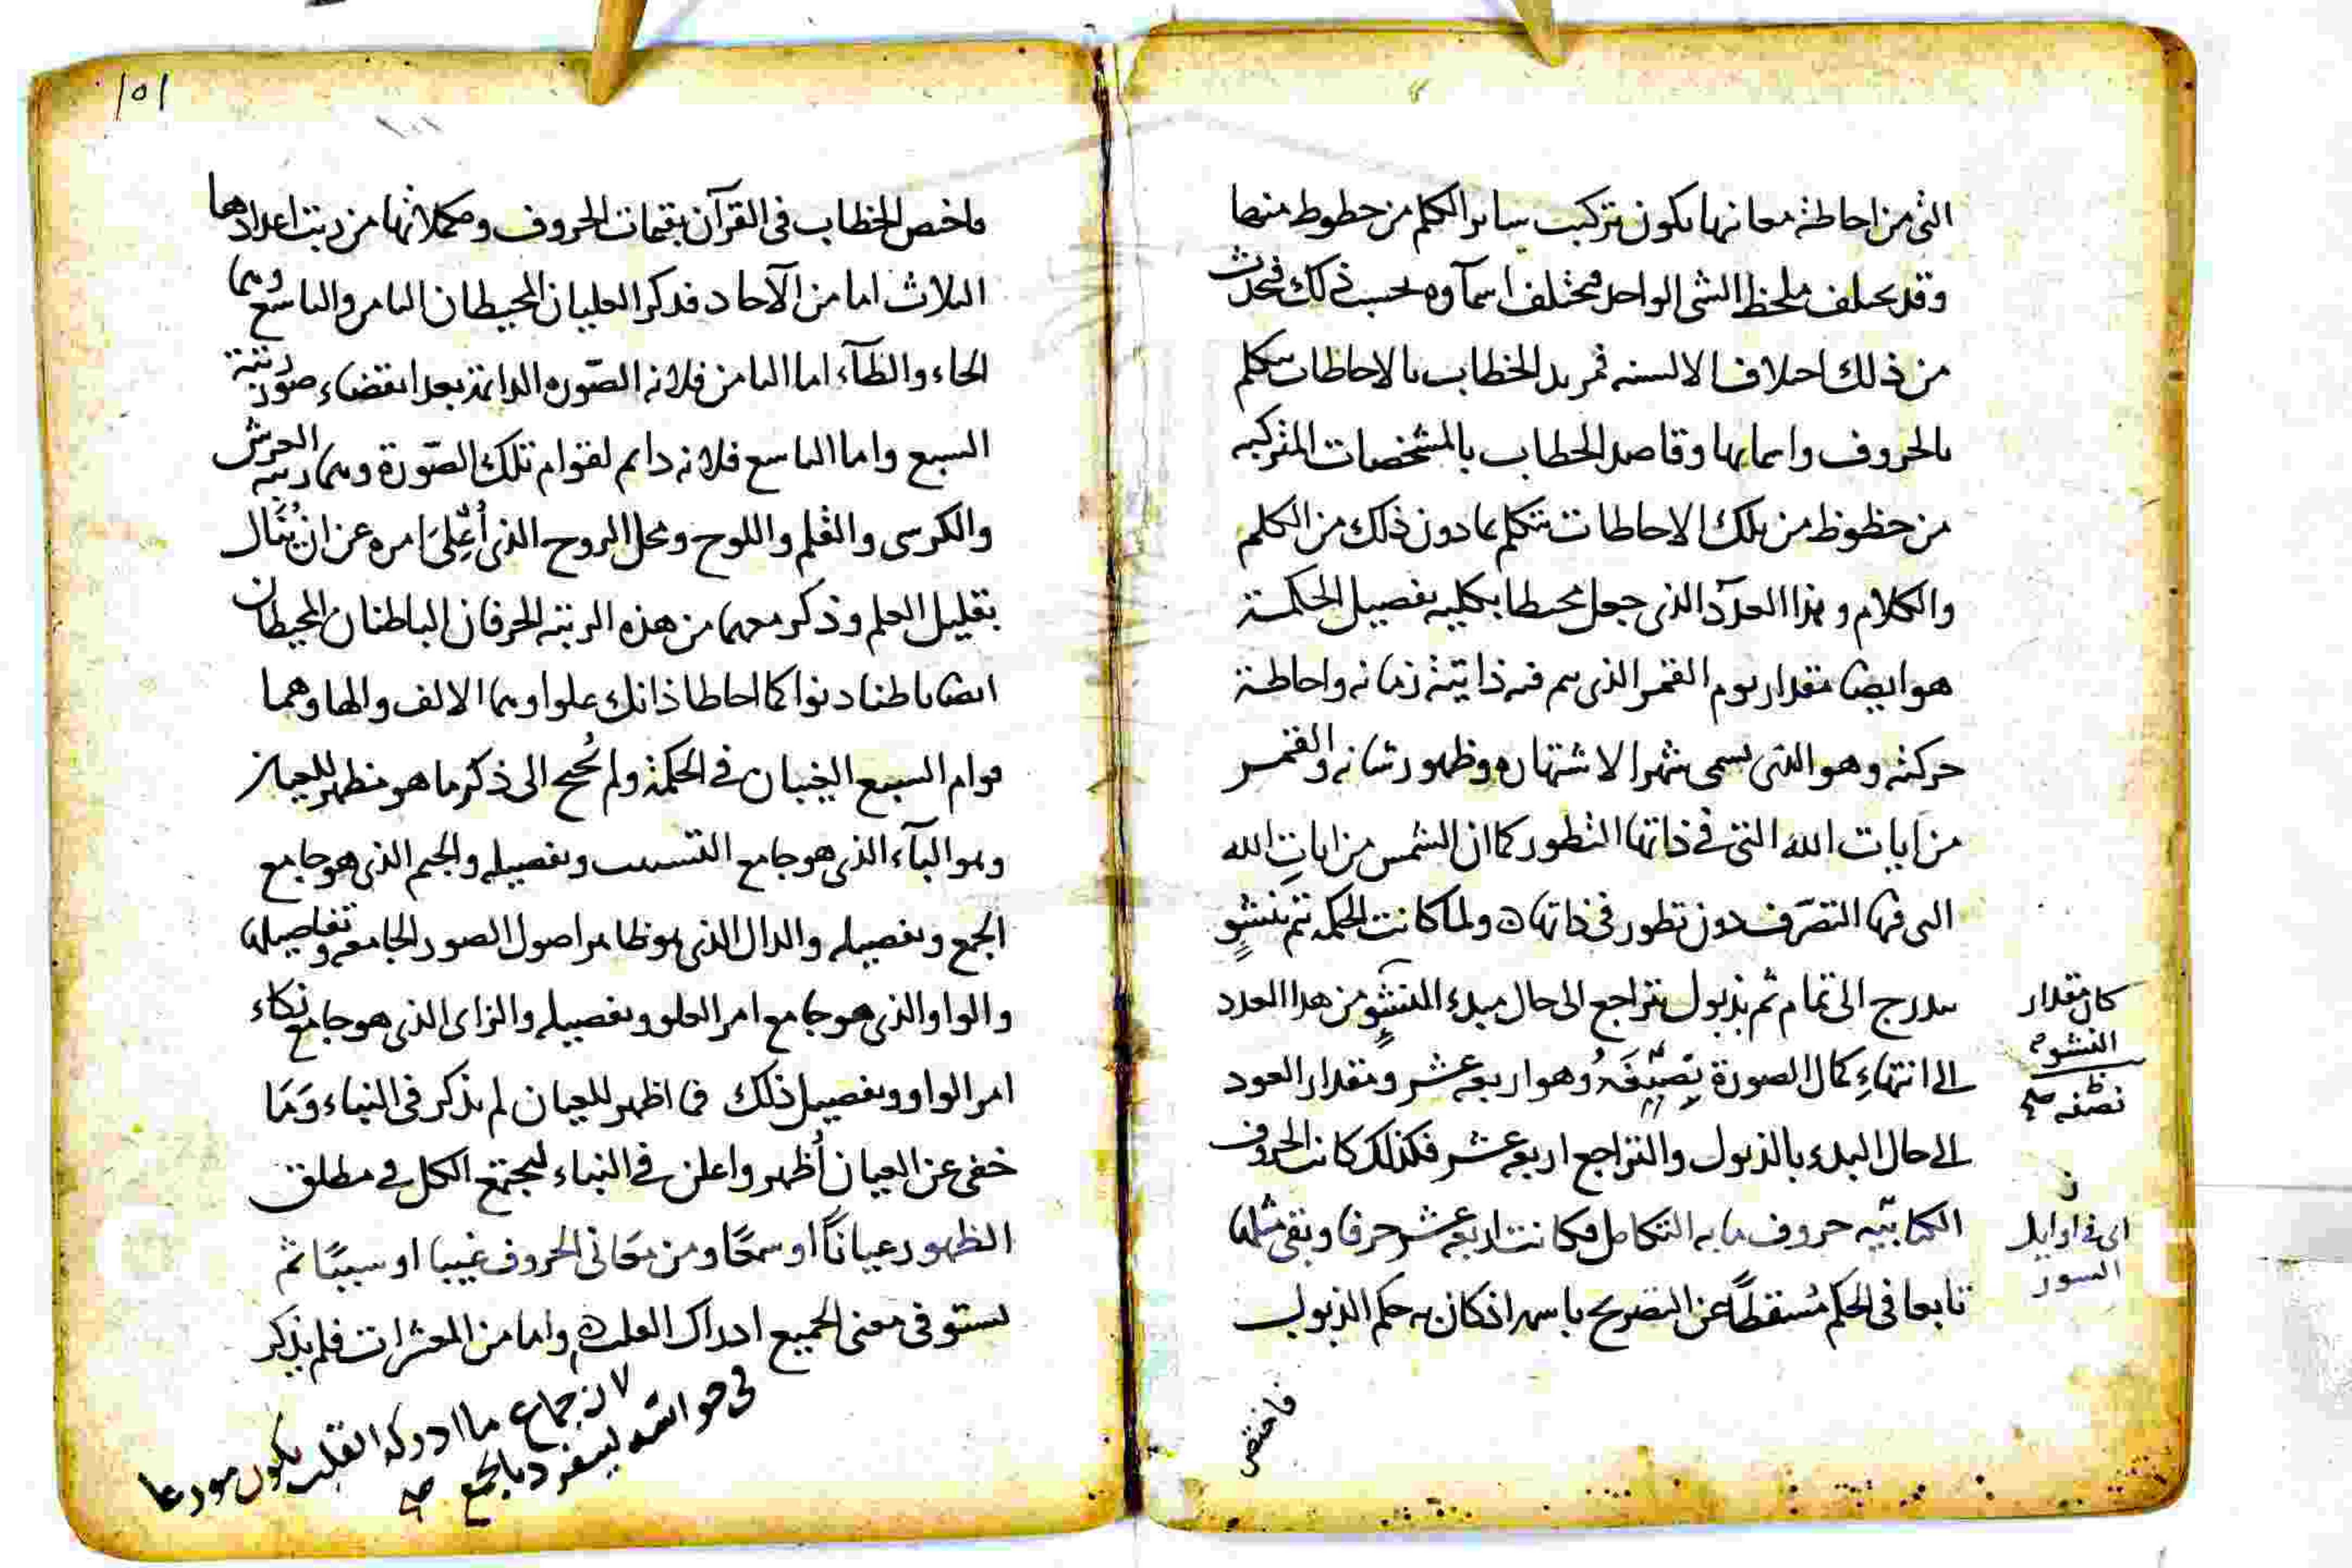 التى من احاطة معانيها يكون تركيب ساير الكلم من حظوظ منها
وقد يختلف ملحظ الشى الواحد فتختلف اسمآوه بحسب ذلك فيحدث
من ذلك اختلاف الالسنه فمريد الخطاب بالاحاطات يتكلم
بالحروف واسمايها وقاصد الخطاب بالمشخصات المتركبه
من حظوظ من تلك الاحاطات يتكلم بما دون ذلك من الكلم
والكلام وهذا العدد الذى جعل محيطا بكليه تفصيل الحكمة
هو ايضا مقدار يوم القمر الذى يتم فيه ذاتية زمانه واحاطة
حركته وهو الذى يسمى شهرا لاشتهاره وظهور شانه والقمر
من ايات الله التى فى ذاتها التطور كما ان الشمس من ايات الله
التى فيها التصرف دون تطور فى ذاتها ولما كانت الحكمه تتم بنشو
يتدرج الى تمام ثم بذبول يتراجع الى حال مبدء النشو من هذا العدد
الى انتهاء كمال الصورة نصفه وهو اربعة عشر ومقدار العود
الى حال البدء بالذبول والتراجع اربعة عشر فكذلك كانت الحروف
الكتابيه حروف ما به التكامل فكانت اربعة عشر حرفا وبقى مثلها
تابعا فى الحكم مسقطا عن التصريح باسمه اذ كان به حكم الذبول
كان مقدار
النشو
نصفه صح
اى فى اوايل
السور
فاختص
١٥١
فاختص الخطاب فى القرآن بتمات الحروف ومكملاتها من رتب اعدادها
الثلاث اما من الآحاد فذكر العليان المحيطان الثامن والتاسع وهما
الحاء والطآء اما الثامن فلانه الصوره الدائمة بعد انقضاء صور رتبة
السبع واما التاسع فلانه دائم لقوام تلك الصورة وهما رتبه العرش
والكرسى والقلم واللوح ومحل الروح الذى اعلى امره عن ان ينال
بقليل العلم وذكر معهما من هذه الرتبه الحرفان الباطنان المحيطان
ايضا باطنا دنوا كما احاطا ذانك علوا وهما الالف والها وهما
قوام السبع الغيبان فى الحكمة ولم يحتج الى ذكر ما هو مظهر للعيان
وهو البآء الذى هو جامع التسبب وتفصيله والجيم الذى هو جامع
الجمع وتفصيله والدال الذى هو ظاهر اصول الصور الجامعه وتفاصيلها
والواو الذى هو جامع امر العلو وتفصيله والزاى الذى هو جامع نكاء
امر الواو وتفصيل ذلك فما اظهر للعيان لم يذكر فى النباء وما
خفى عن العيان اظهر واعلن فى النباء ليجتمع الكل فى مطلق
الظهور عيانا او سمعا ومن معانى الحروف غيبا او سببا ثم
يستوفى معنى الجميع ادراك القلب واما من العشرات فلم يذكر
لان جماع ما ادركه القلب يكون مودعا
فى حواسه لينفرد بالجمع صح